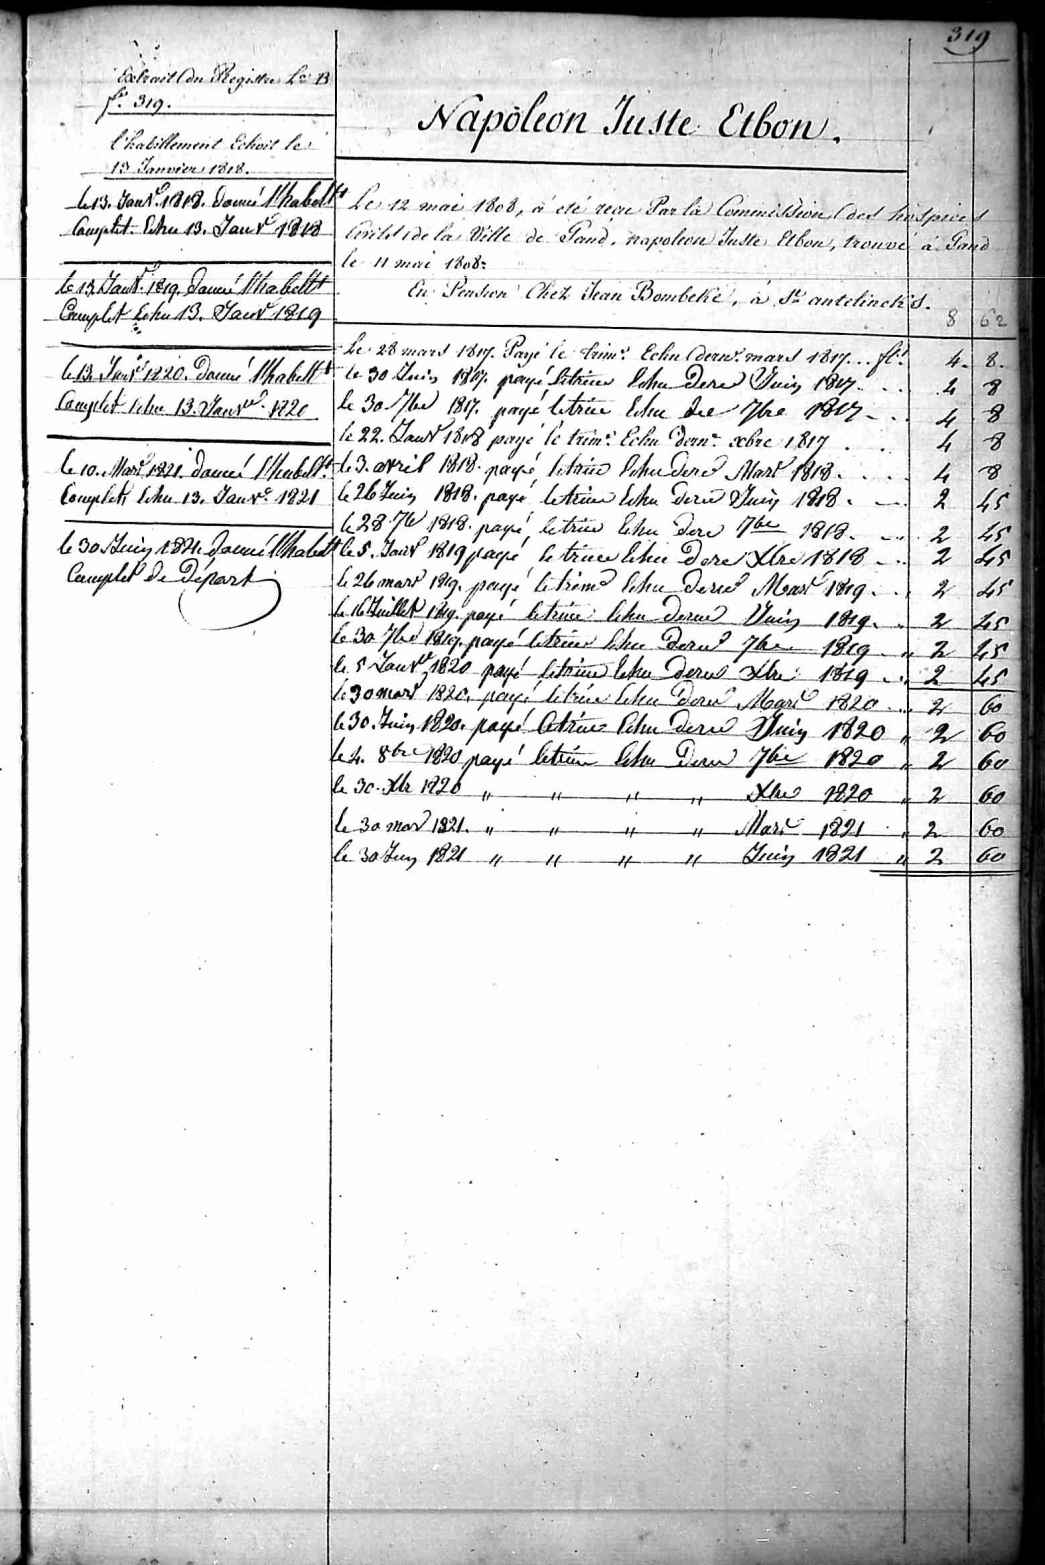 319
Extrait du Registre Lr B
fo. 319.
l'habillement Echoit le
13 Janvier 1818.
le 13. Janvr. 1818. donné l'habellt
Complet. Echu 13. Janvr 1818
le 13. Janvr. 1819. donné l'habellt
Complet Echu 13. Janvr 1819
le 13. Janvr 1820. donné l'habellt
Complet echu 13. Janver. 1820
le 10. Mars 1821. donné l'habellt
Complet echu 13. Janvr. 1821
le 30 Juin 1821. donné l'habellt
Complet de Départ
Napoléon Juste Etbon.
Le 12 mai 1808, à eté reçu Par la Commission des hospices
Civils de la Ville de Gand, napoléon Juste Etbon, trouvé à Gand
le 11 mai 1808.
En Pension Chez Jean Bombeke, à St. antelincks.
8 62
Le 28 mars 1817. Payé le trimr. Echu dernr. mars 1817... fls. 4. 8.
le 30 Juin 1817. payé le trim Echu dere Juin 1817. . . 4 8
le 30 7bre 1817. payé le trim Echu dre 7bre 1817 . . 4 8
le 22. Janvr 1818 payé le trimr. Echu dernr. xbre 1817 . . . 4 8
le 3. avril 1818. payé le trim Echu dere Mars 1818. . . . 4 8
le 26 Juin 1818. payé le trim Echu dere Juin 1818. . . 2 45
le 28 7br 1818. payé le trim Echu dere 7bre 1818 . . . 2 45
le 5. Janvr 1819 payé le trim Echu dere Xbre 1818 . . . 2 45
le 26 mars 1819. payé le trim Echu dere Mars 1819. . . 2 45
le 16 Juillet 1819. payé le trim Echu dere Juin 1819. . 2 45
le 30 7bre 1819. payé le trim Echu dere 7bre 1819 " 2 45
le 5 Janvr 1820 payé le trim Echu dere xbre 1819 . . 2 45
le 30 mars 1820. payé le trim Echu dere Mars 1820 . . 2 60
le 30. Juin 1820. payé le trim Echu dere Juin 1820 " 2 60
le 4. 8bre 1820 payé le trim Echu dere 7bre 1820 " 2 60
le 30. Xbr 1820 " " " " Xbre 1820 " 2 60
le 30 mars 1821. " " " " Mars 1821 " 2 60
le 30 Juin 1821 " " " " Juin 1821 " 2 60